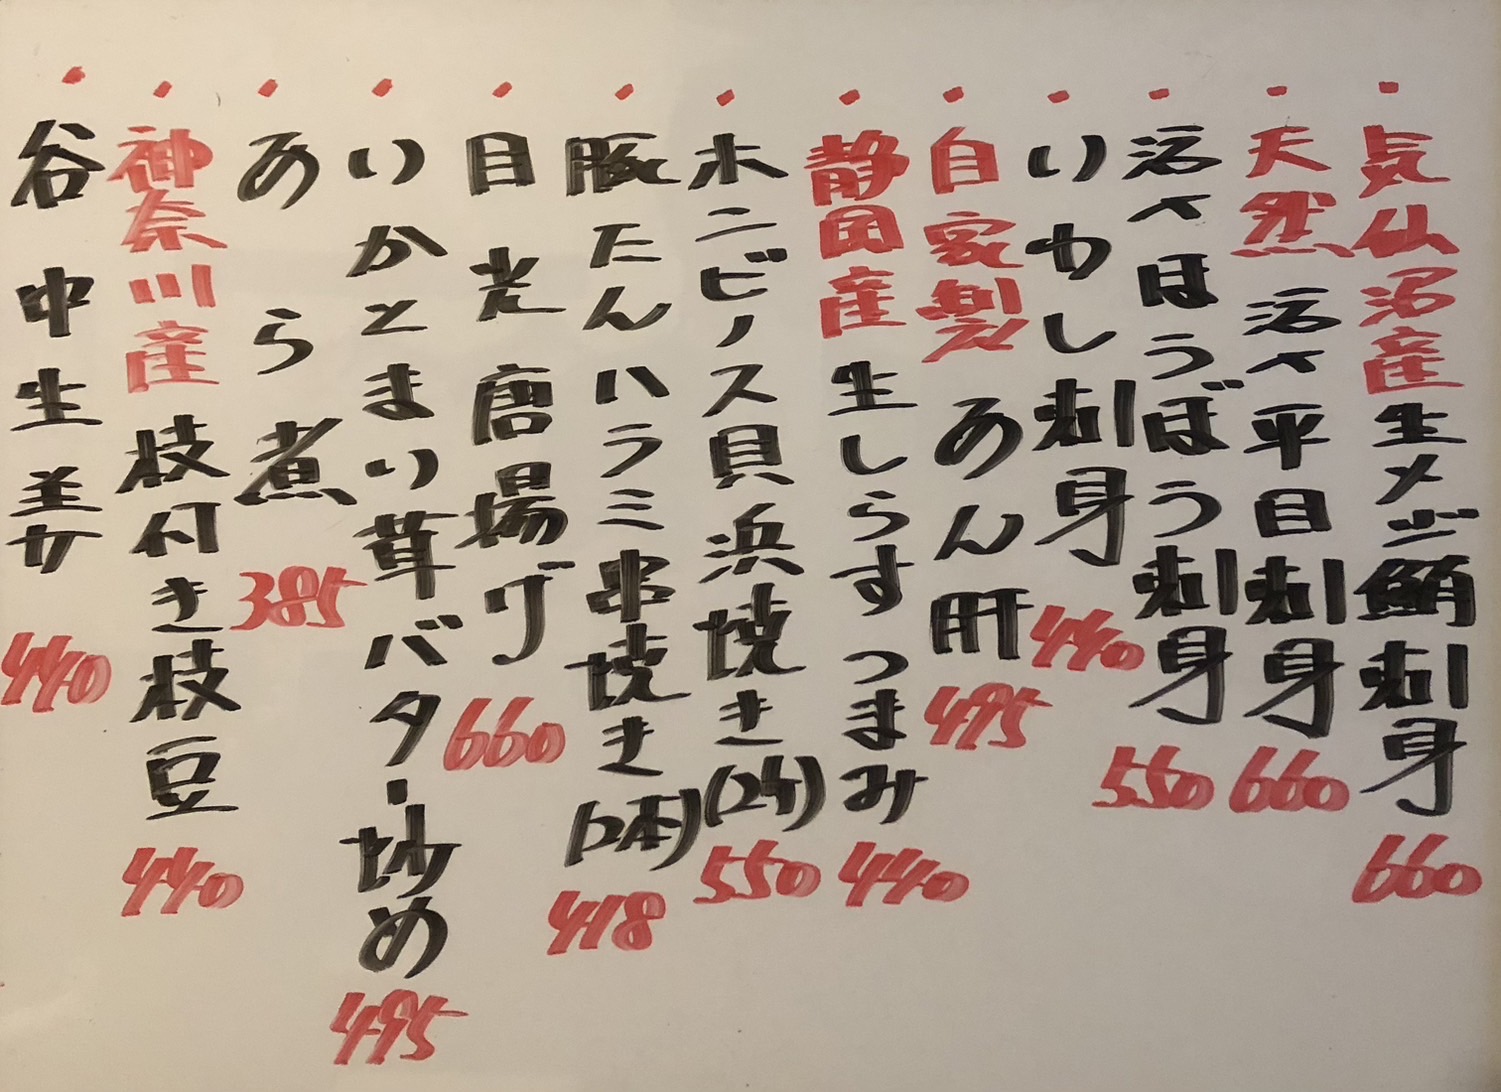 ・気仙沼産生メジ鮪刺身 660
・天然活〆平目刺身 660
・活〆ほうぼう刺身 550
・いわし刺身 440
・自家製あん肝 495
・静岡産生しらすつまみ 440
・ホンビノス貝浜焼き(2ケ) 550
・豚たんハラミ串焼き(2本) 418
・目光唐揚げ 660
・いかとまい茸バター炒め 495
・あら煮 385
・神奈川産枝付き枝豆 440
・谷中生姜 440